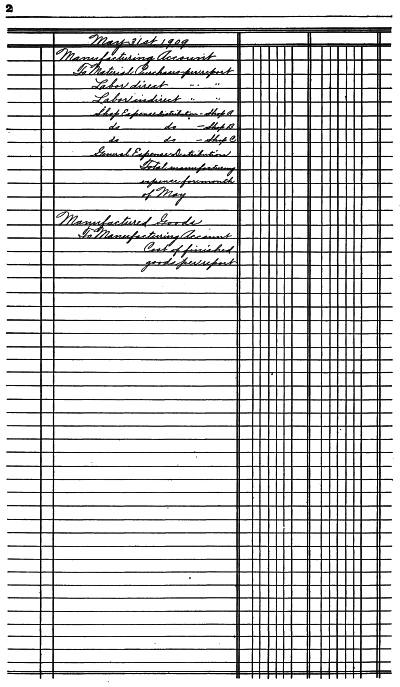 2
May 31st 1909
Manufacturing Account
To Material Purchases per report
Labor direct " "
Labor indirect " "
Shop Expense distribution - Shop A
do do - Shop B
do do - Shop C
General Expense Distribution
Total manufacturing
expense for month
of May
Manufactured Goods
To Manufacturing Account
Cost of finished
goods per report